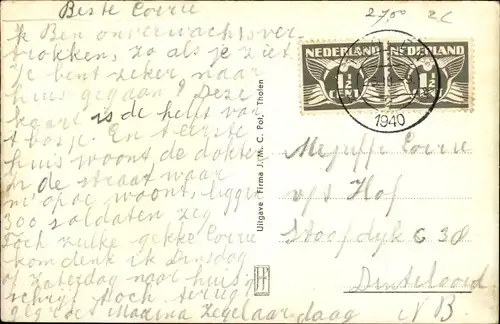 Beste Corrie
Ik Ben onverwachts ver-
trokken, zo als je ziet.
Je bent zeker naar
huis gegaan? Deze
kaart is de helft van
t bosje. En t eerste
huis woont de dokter
in de straat waar
m'n opoe woont, liggen
300 soldaten zeg
Toch zulke gekke Corrie
kom denk ik Dinsdag
of Zaterdag naar huis
schrijf noch terug
gegroet Marina Zegelaar daag
27,00 2C
NEDERLAND NEDERLAND
1½ CENT 1½ CENT
1940
Uitgave: Firma J. M. C. Pot, Tholen
Mejuffr Corrie
v/s Hof
Stoofdijk G 38
Dinteloord
N B.